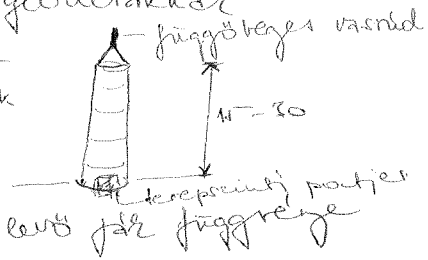 függőleges vasrúd
k
15-30
terepszinti pontjel
levő fák függvénye